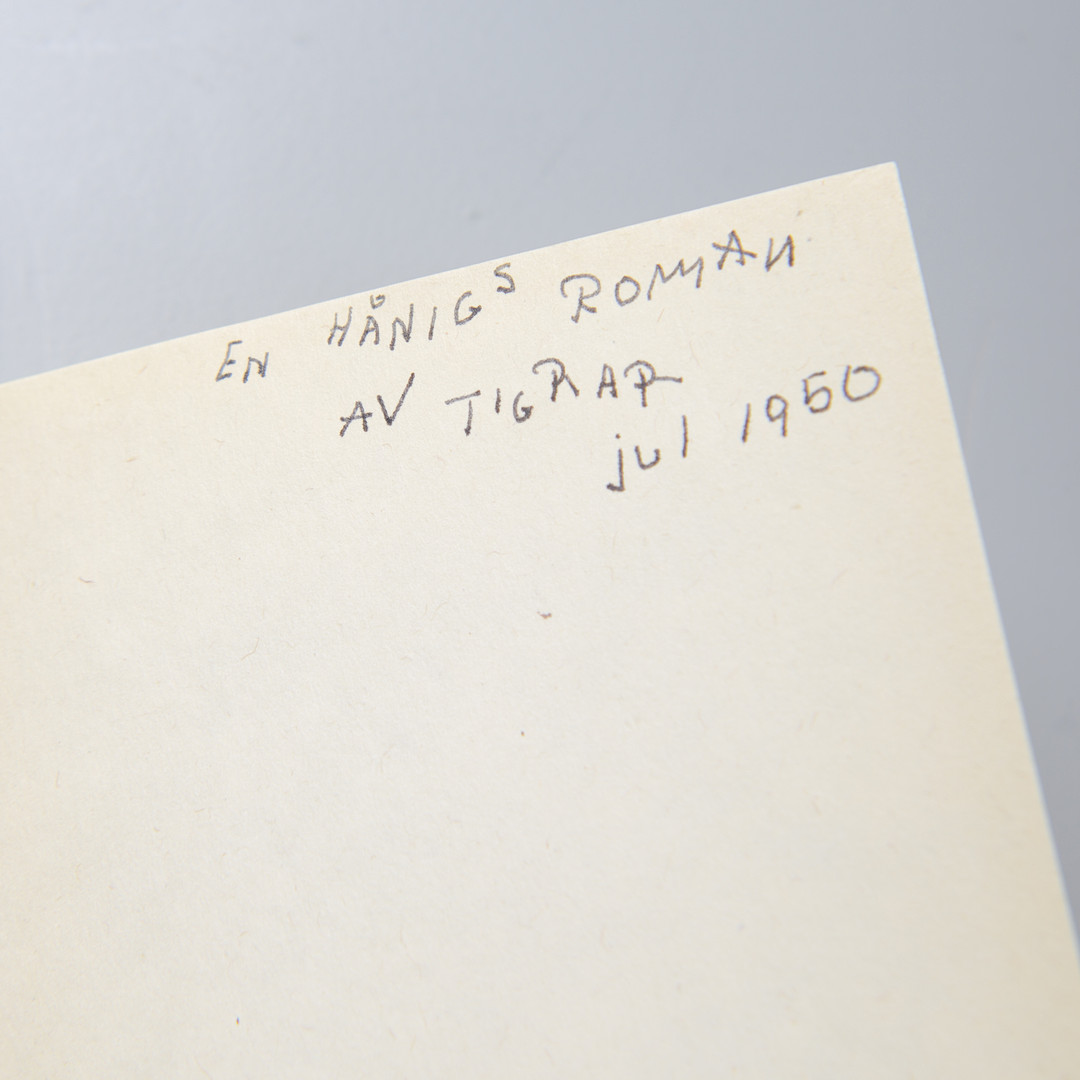 EN HÅNIGS ROMAN
AV TIGRAR
jul 1950